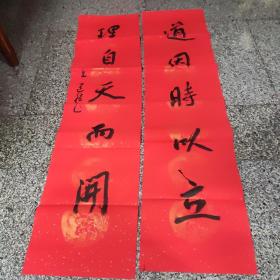 道因時以立
理自天而開